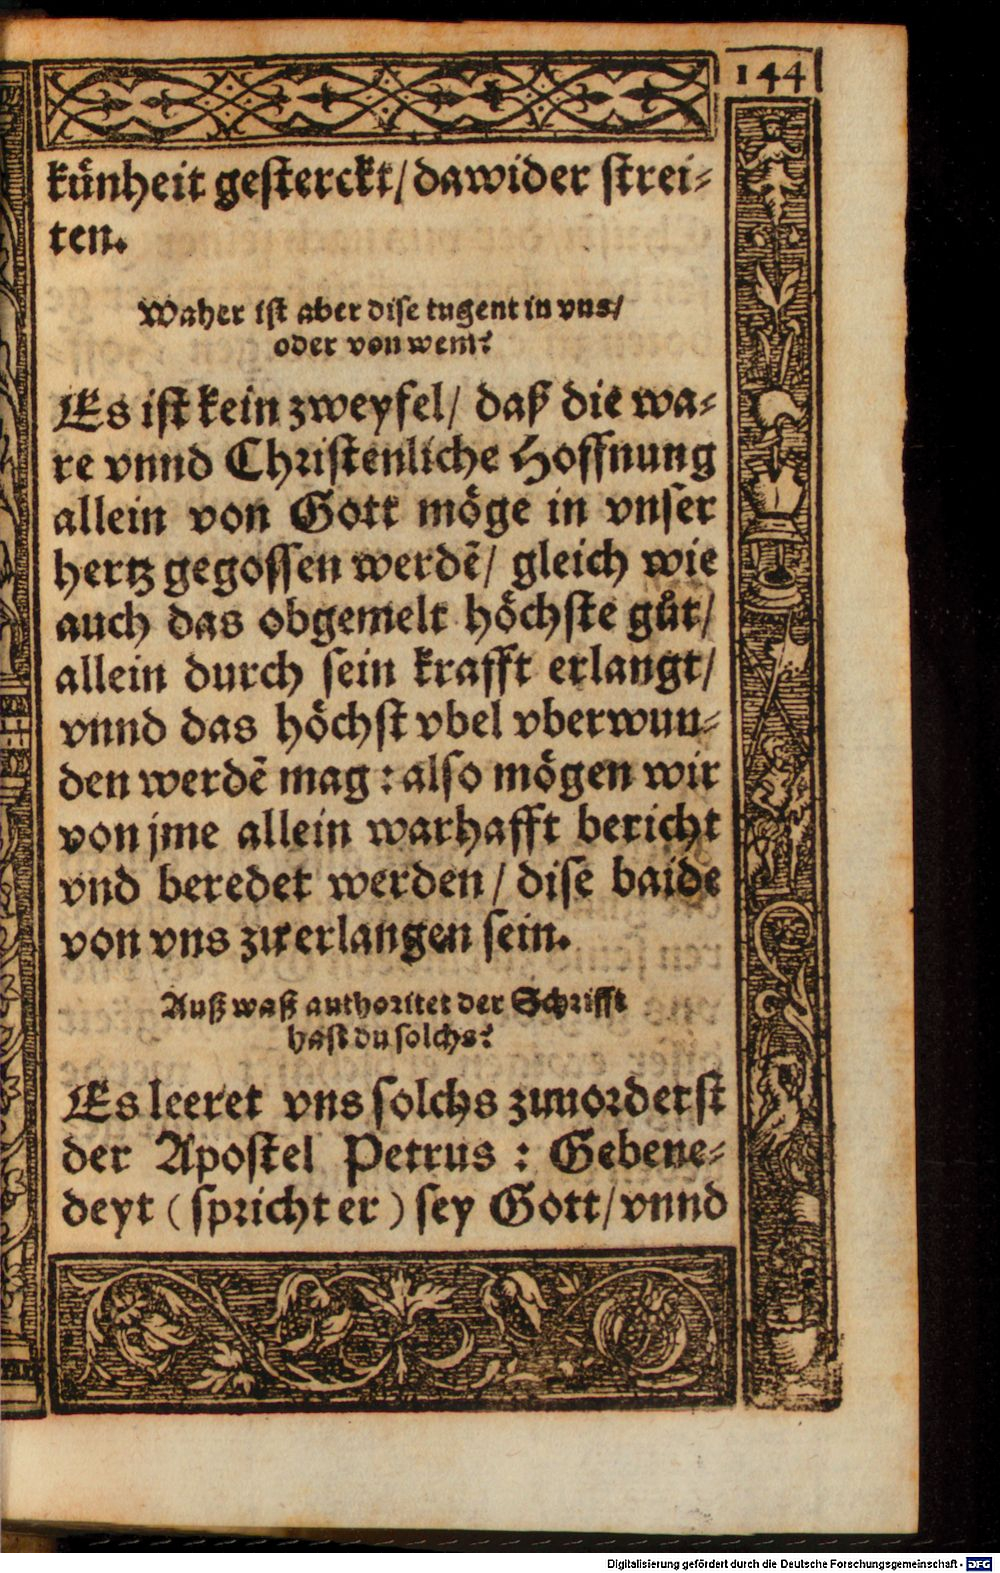 144
kuͤnheit gesterckt/ dawider strei-
ten.
Waher ist aber dise tugent in vns/
oder von wem?
Es ist kein zweyfel/ daß die wa-
re vnnd Christenliche Hoffnung
allein von Gott moͤge in vnser
hertz gegossen werdẽ/ gleich wie
auch das obgemelt hoͤchste guͤt/
allein durch sein krafft erlangt/
vnnd das hoͤchst vbel vberwun-
den werdẽ mag: also moͤgen wir
von jme allein warhafft bericht
vnd beredet werden/ dise baide
von vns zu erlangen sein.
Auß waß authoritet der Schrifft
hast du solchs?
Es leeret vns solchs zuuorderst
der Apostel Petrus: Gebene-
deyt (spricht er) sey Gott/ vnnd
Digitalisierung gefördert durch die Deutsche Forschungsgemeinschaft - DFG